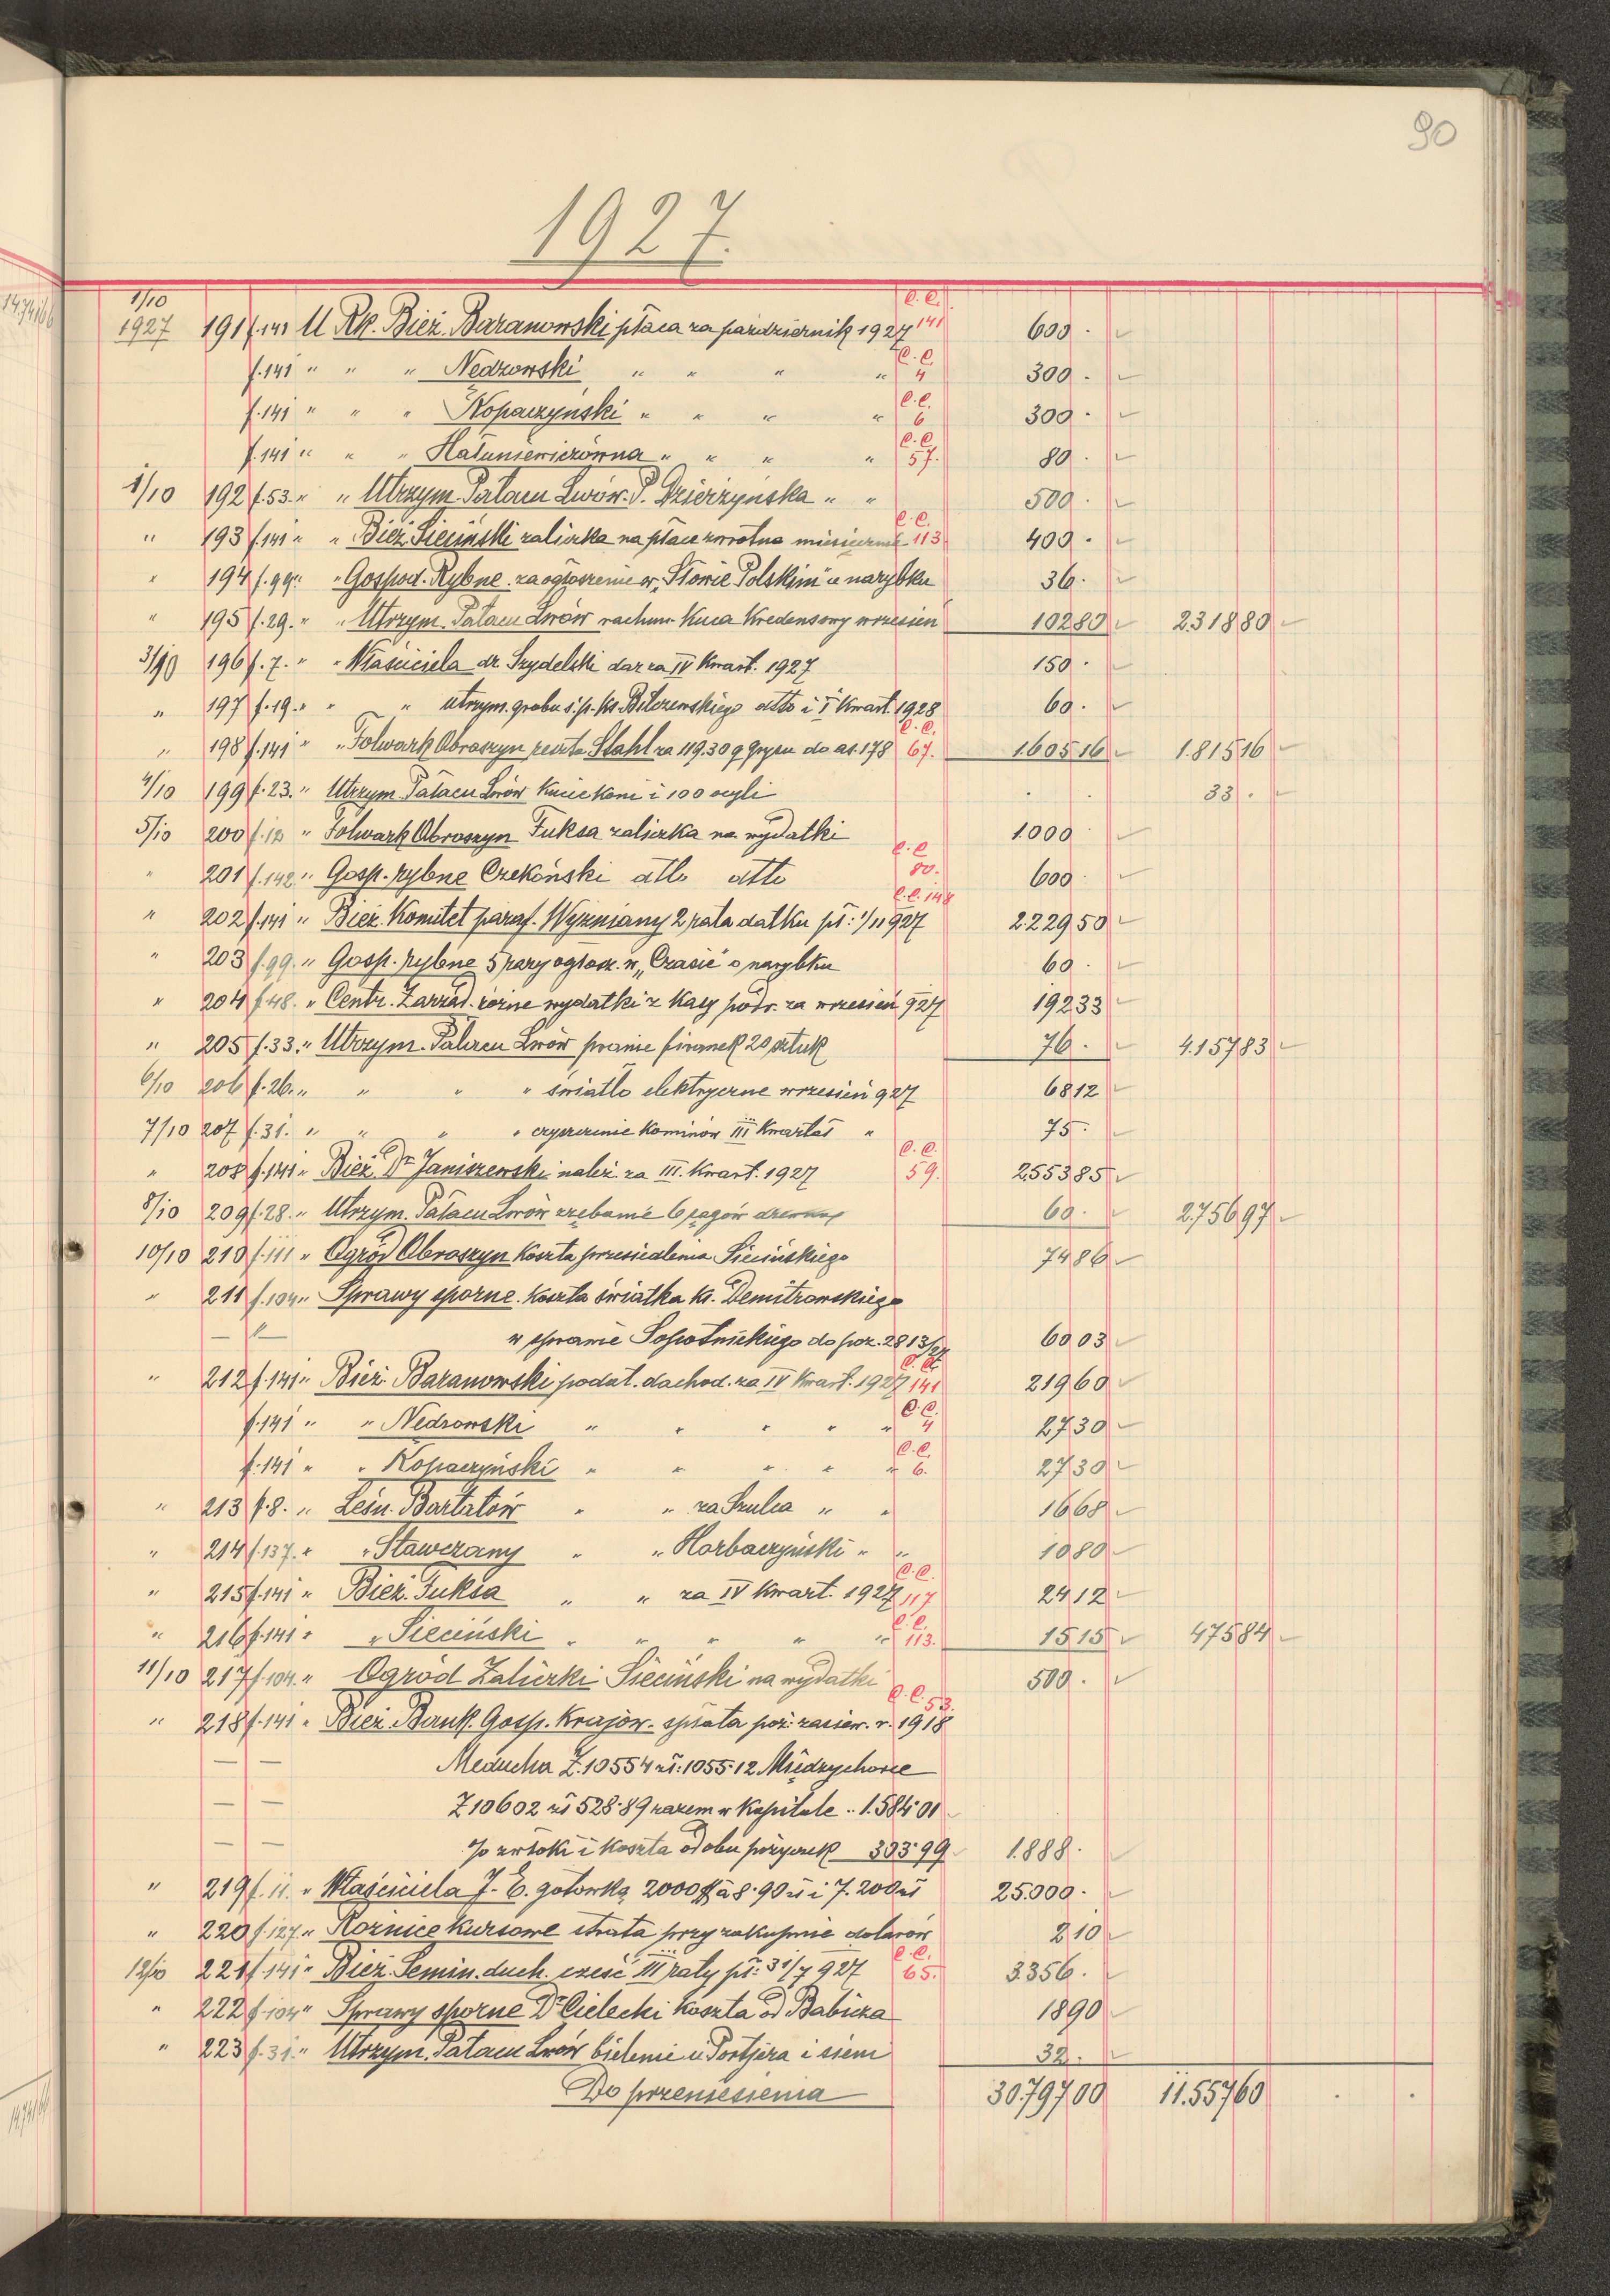 90
1927.
1/10 C.C.
1927 191 f.141 U Rk. Bież. Baranowski płaca za październik 1927 141 600 ·
f.141 " " " Nedzowski " " " " C.C. 4 300 ·
f.141 " " " Kopaczyński " " " " C.C. 6 300 ·
f.141 " " " Hałuniewiczówna " " " " C.C. 57. 80 ·
1/10 192 f.53. " " Utrzym. Pałacu Lwów. P. Dzierżyńska " " 500 ·
" 193 f.141 " " Bież. Sieciński zaliczka na płacę zwrotna miesięcznie C.C. 113 400 ·
" 194 f.99. " " Gospod. Rybne. za ogłoszenie w „Słowie Polskim" o narybku 36 ·
" 195 f.29. " " Utrzym. Pałacu Lwów rachun. Kuca Kredensowy wrzesień 102 80 2.318 80
3/10 196 f.7. " " Właściciela dr. Szydelski dar za IV Kwart. 1927 150 ·
" 197 f.19. " " " utrzym. grobu ś.p. Ks. Bilczewskiego dtto i I Kwart. 1928 60 ·
" 198 f.141 " " Folwark Obroszyn reszta Stahl za 119.30 q grysu do as. 178 C.C. 67. 1.605 16 1.815 16
4/10 199 f.23. " Utrzym. Pałacu Lwów kucie koni i 100 cegli · · 33 ·
5/10 200 f.12 " Folwark Obroszyn Fuksa zaliczka na wydatki 1.000 ·
" 201 f.142. " Gosp. rybne Czekoński dtto dtto C.C. 80. 600 ·
" 202 f.141 " Bież. Komitet paraf. Wyżniany 2 rata datku pł: 1/11 927 C.C. 148 2.229 50
" 203 f.99. " Gosp. rybne 5 razy ogłosz. w „Czasie" o narybku 60 ·
" 204 f.48. " Centr. Zarząd. różne wydatki z Kasy podr. za wrzesień 927 192 33
" 205 f.33. " Utrzym. Pałacu Lwów pranie firanek 20 sztuk 76 · 4.157 83
6/10 206 f.26. " " " " światło elektryczne wrzesień 927 68 12
7/10 207 f.31. " " " " czyszczenie kominów III Kwartał " 75 ·
" 208 f.141 " Bież. Dr Janiszewski należ. za III. Kwart. 1927 C.C. 59. 2.553 85
8/10 209 f.28. " Utrzym. Pałacu Lwów rżębanie 6 sągów drzewa 60 · 2.756 97
10/10 210 f.111 " Ogród Obroszyn Koszta przesiedlenia Siecińskiego 74 86
" 211 f.104. " Sprawy sporne. Koszta świadka Ks. Demitrowskiego
— " — w sprawie Sopotnickiego do poz. 28 13/27 60 03
" 212 f.141 " Bież. Baranowski podat. dochod. za IV Kwart. 1927 C.C. 141 219 60
f.141 " " Nedzowski " " " " " C.C. 4 27 30
f.141 " " Kopaczyński " " " " " C.C. 6. 27 30
" 213 f.8. " Leśn. Bartatów " " za Szulca " " 16 68
" 214 f.137. " " Stawczany " " Horbaczyński " " 10 80
" 215 f.141 " Bież. Fuksa " " za IV Kwart. 1927 C.C. 117 24 12
" 216 f.141 " " Sieciński " " " " " C.C. 113. 15 15 475 84
11/10 217 f.104. " Ogród Zaliczki Sieciński na wydatki 500 ·
" 218 f.141 " Bież. Bank. Gosp. Krajow. spłata poż: zasiew. r. 1918 C.C. 53.
— — Meducha Z. 10554 zł: 1055·12 Międzychorce
— — Z 10602 zł 528·89 razem w Kapitale .. 1.584·01
— — % zwłoki i koszta od obu pożyczek 303·99 1.888 ·
" 219 f.11. " Właściciela J. E. gotówką 2000 $ à 8·90 zł i 7.200 zł 25.000 ·
" 220 f.127. " Różnice Kursowe strata przy zakupnie dolarów 2 10
12/10 221 f.141 " Bież. Semin. duch. część III raty pł: 31/7 927 C.C. 65. 3.356 ·
" 222 f.104 " Sprawy sporne Dr Cielecki Koszta od Babicza 18 90
" 223 f.31. " Utrzym. Pałacu Lwów bielenie u Portjera i sieni 32 ·
Do przeniesienia 30.797 00 11.557 60 · ·